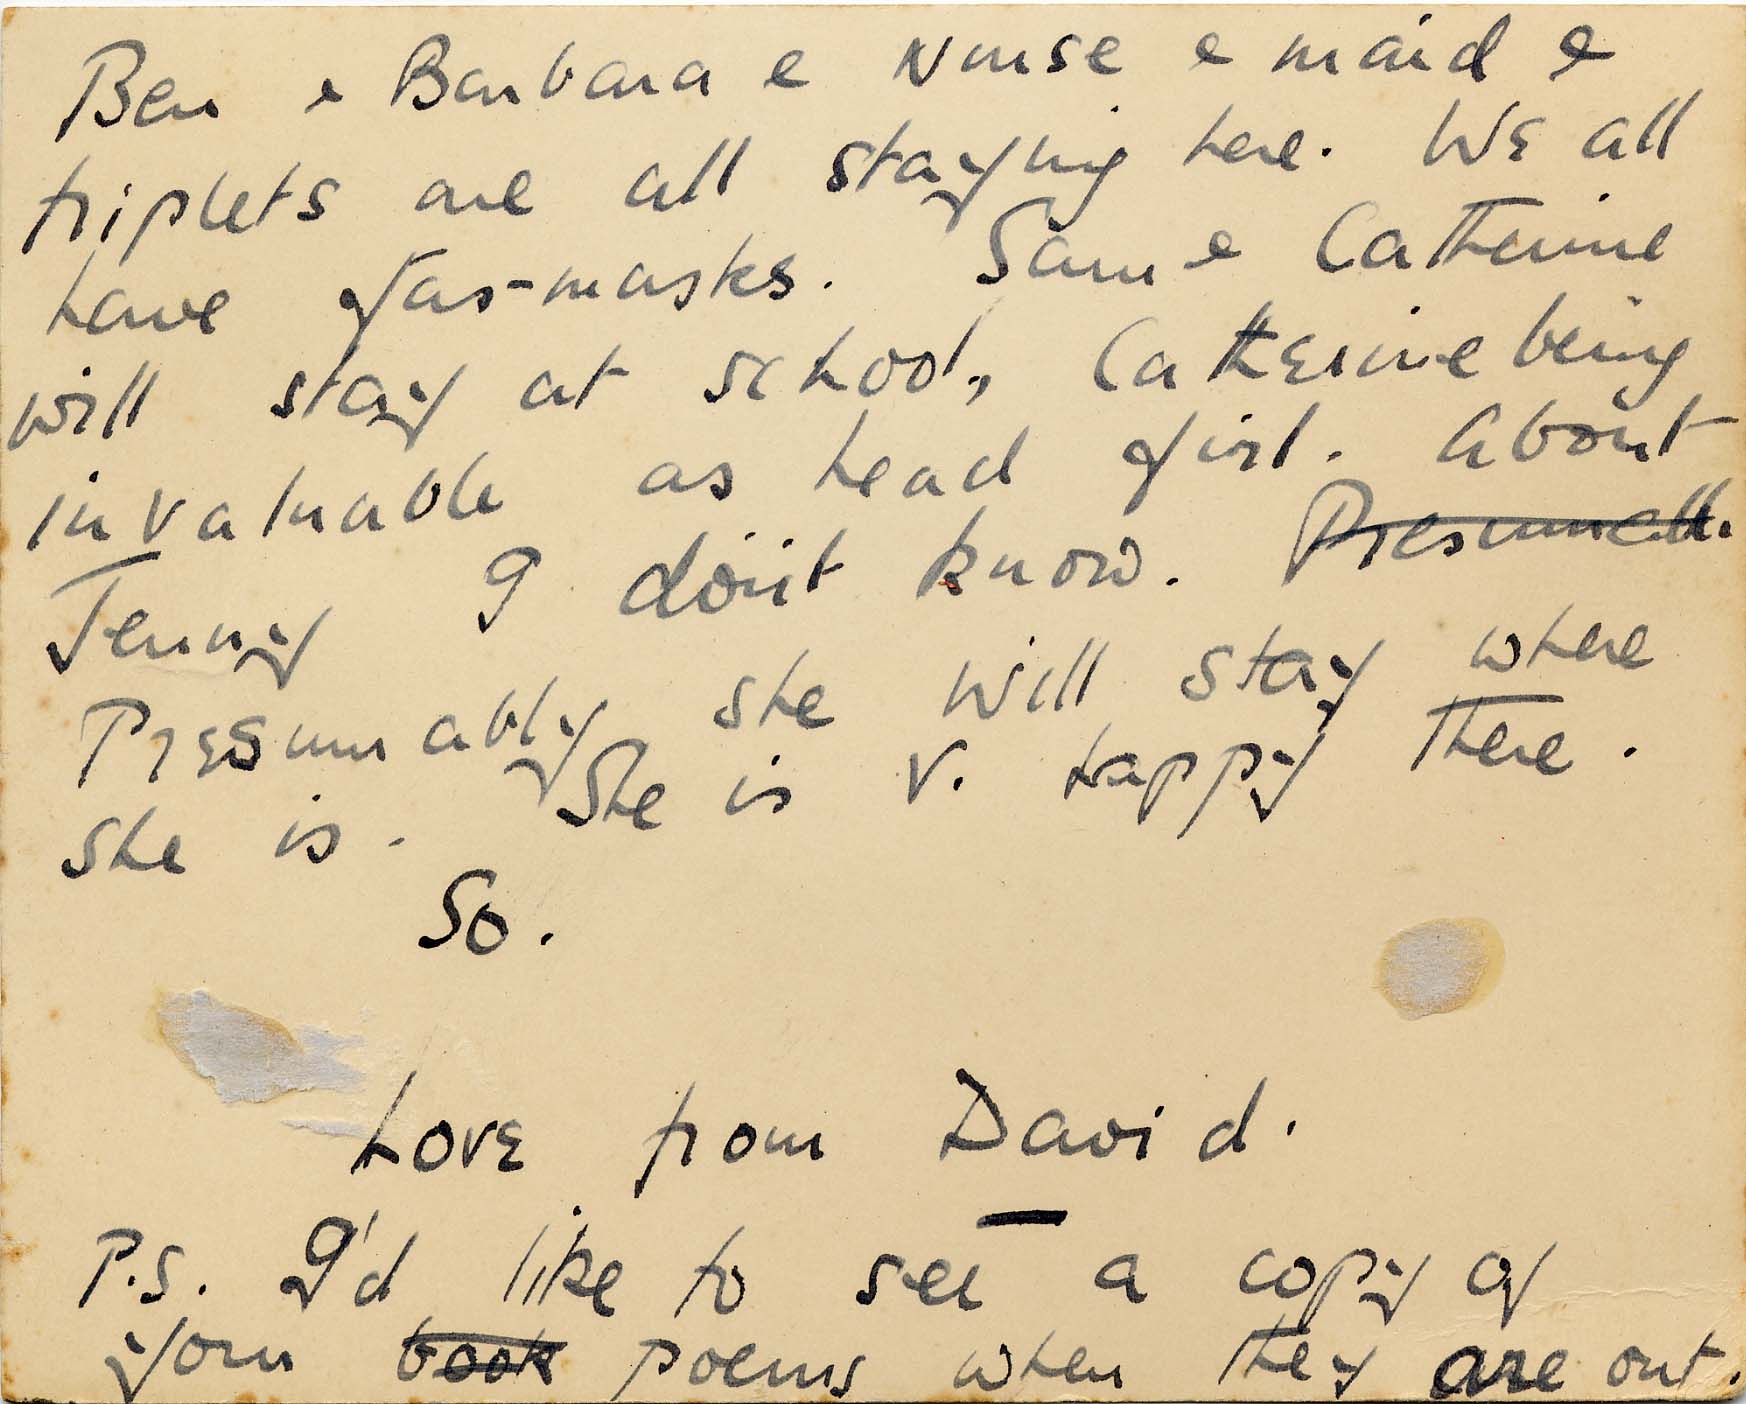 Ben & Barbara & Nurse & maid &
triplets are all staying here. We all
have gas-masks. Sam & Catherine
will stay at school, Catherine being
invaluable as head girl. About
Jenny I don't know.
Presumably she will stay where
she is. She is v. happy there.
So.
Love from David.
P.S. I'd like to see a copy of
your book poems when they are out.